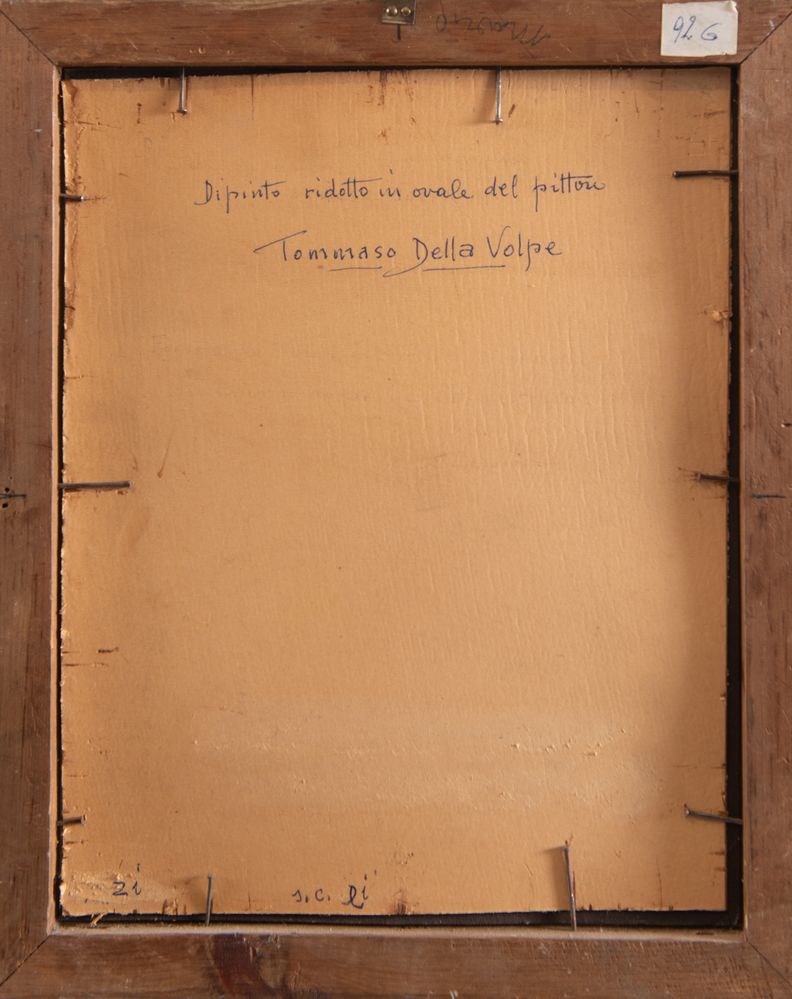 92 G
Dipinto ridotto in ovale del pittore
Tommaso Della Volpe
zi
s.c. li